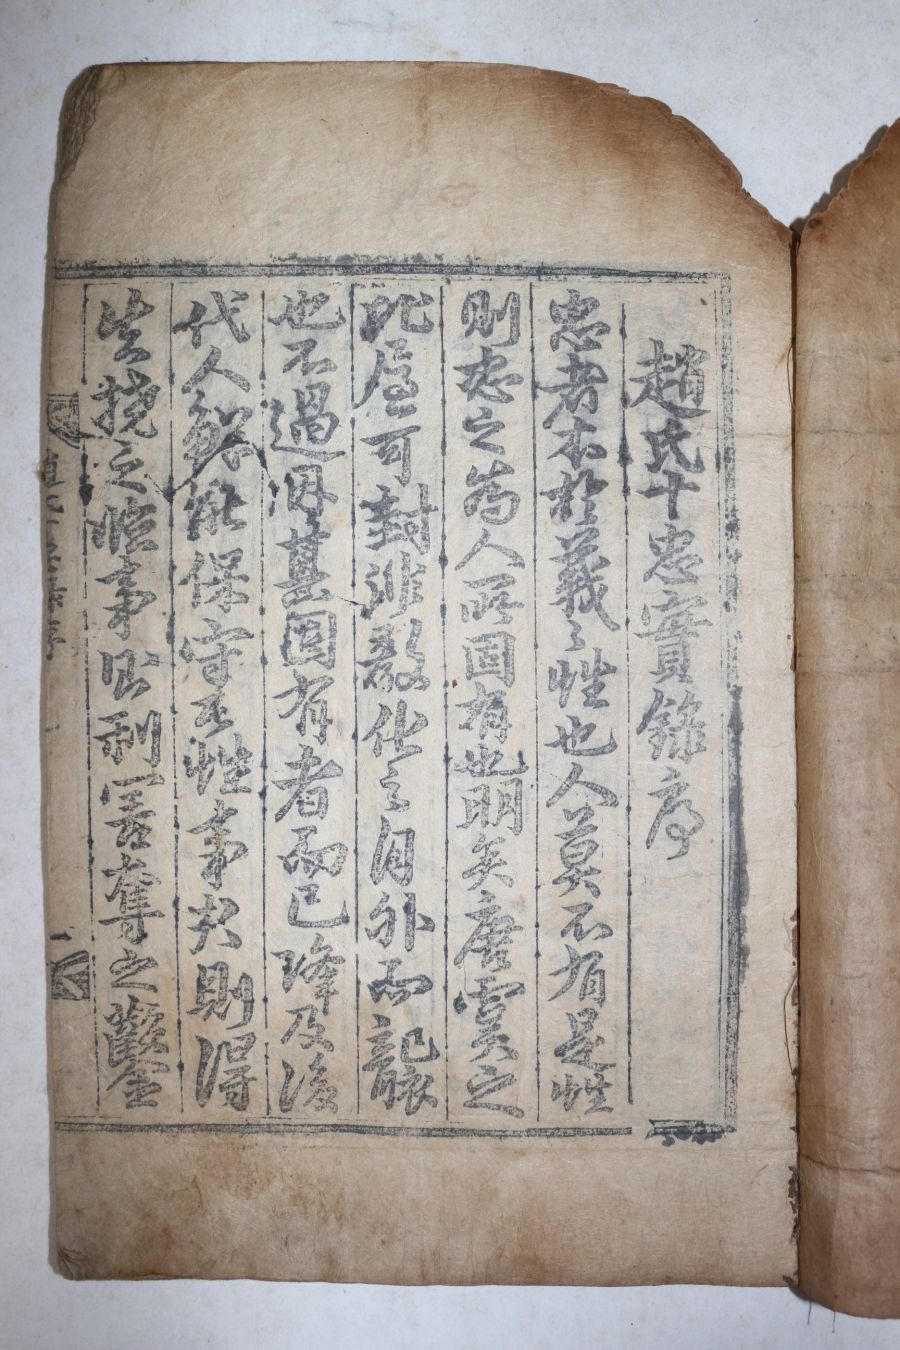 趙氏十忠實錄序
忠者本於義々性也人莫不有是性
則忠之爲人所固有也明矣唐虞之
比屋可封非敎化之自外而
也不過因其固有者而已降及後
代人鮮能保守其性事父則得
失撓之臨事則利害奪之